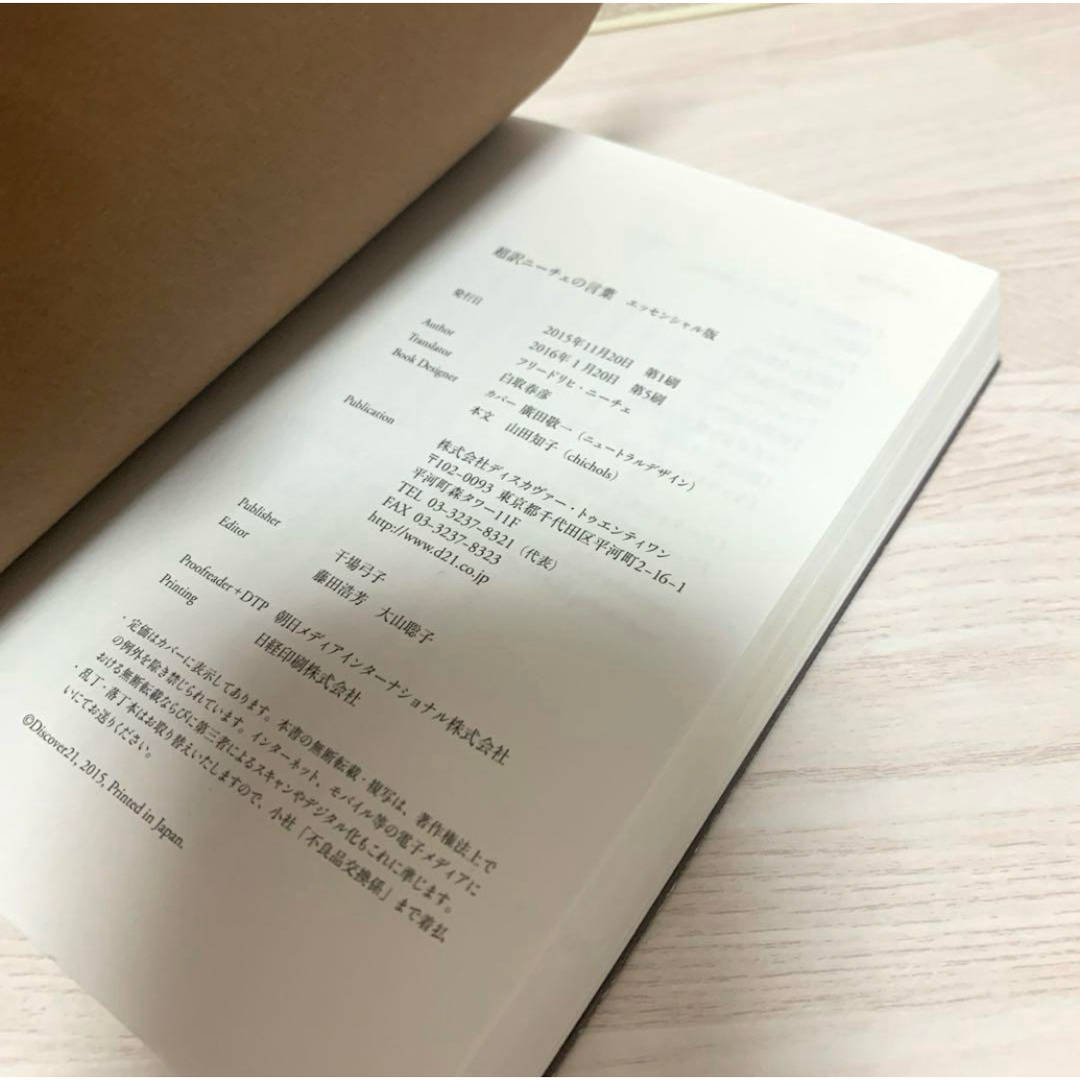 超訳ニーチェの言葉 エッセンシャル版
発行日 2015年11月20日 第1刷
2016年1月20日 第5刷
Author フリードリヒ・ニーチェ
Translator 白取春彦
Book Designer カバー 廣田敬一(ニュートラルデザイン)
本文 山田知子(chichols)
Publication 株式会社ディスカヴァー・トゥエンティワン
〒102-0093 東京都千代田区平河町2-16-1
平河町森タワー11F
TEL 03-3237-8321(代表)
FAX 03-3237-8323
http://www.d21.co.jp
Publisher 干場弓子
Editor 藤田浩芳 大山聡子
Proofreader+DTP 朝日メディアインターナショナル株式会社
Printing 日経印刷株式会社
・定価はカバーに表示してあります。本書の無断転載・複写は、著作権法上で
の例外を除き禁じられています。インターネット、モバイル等の電子メディアに
おける無断転載ならびに第三者によるスキャンやデジタル化もこれに準じます。
・乱丁・落丁本はお取り替えいたしますので、小社「不良品交換係」まで着払
いにてお送りください。
©Discover21, 2015, Printed in Japan.